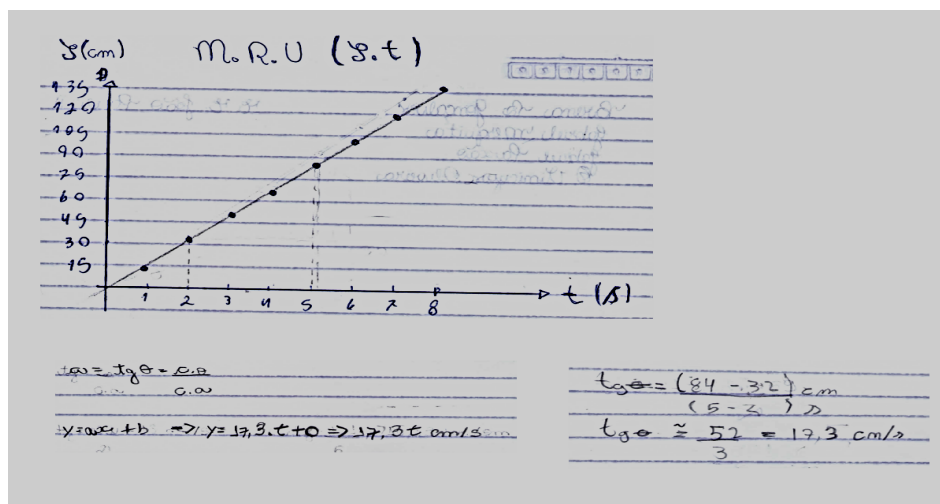 S(cm) M.R.U (S.t)
135
120
105
90
75
60
45
30
15
1 2 3 4 5 6 7 8 t (s)
a = tg θ = c.o
c.a
y=ax+b => y=17,3.t+0 => 17,3t cm/s
tgθ = (84-32) cm
(5-2) s
tgθ ≅ 52 = 17,3 cm/s
3